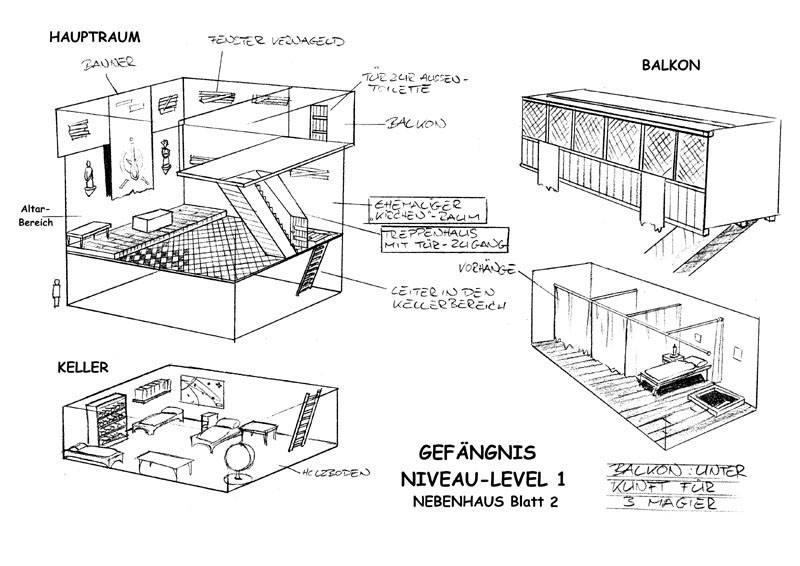 HAUPTRAUM
BANNER
FENSTER VERNAGELD
TÜR ZUR AUSSEN-
TOILETTE
BALKON
Altar-
Bereich
EHEMALIGER
„KIRCHEN"-RAUM
TREPPENHAUS
MIT TÜR-ZUGANG
LEITER IN DEN
KELLERBEREICH
BALKON
VORHÄNGE
KELLER
HOLZBODEN
GEFÄNGNIS
NIVEAU-LEVEL 1
NEBENHAUS Blatt 2
BALKON: UNTER
KUNFT FÜR
3 MAGIER